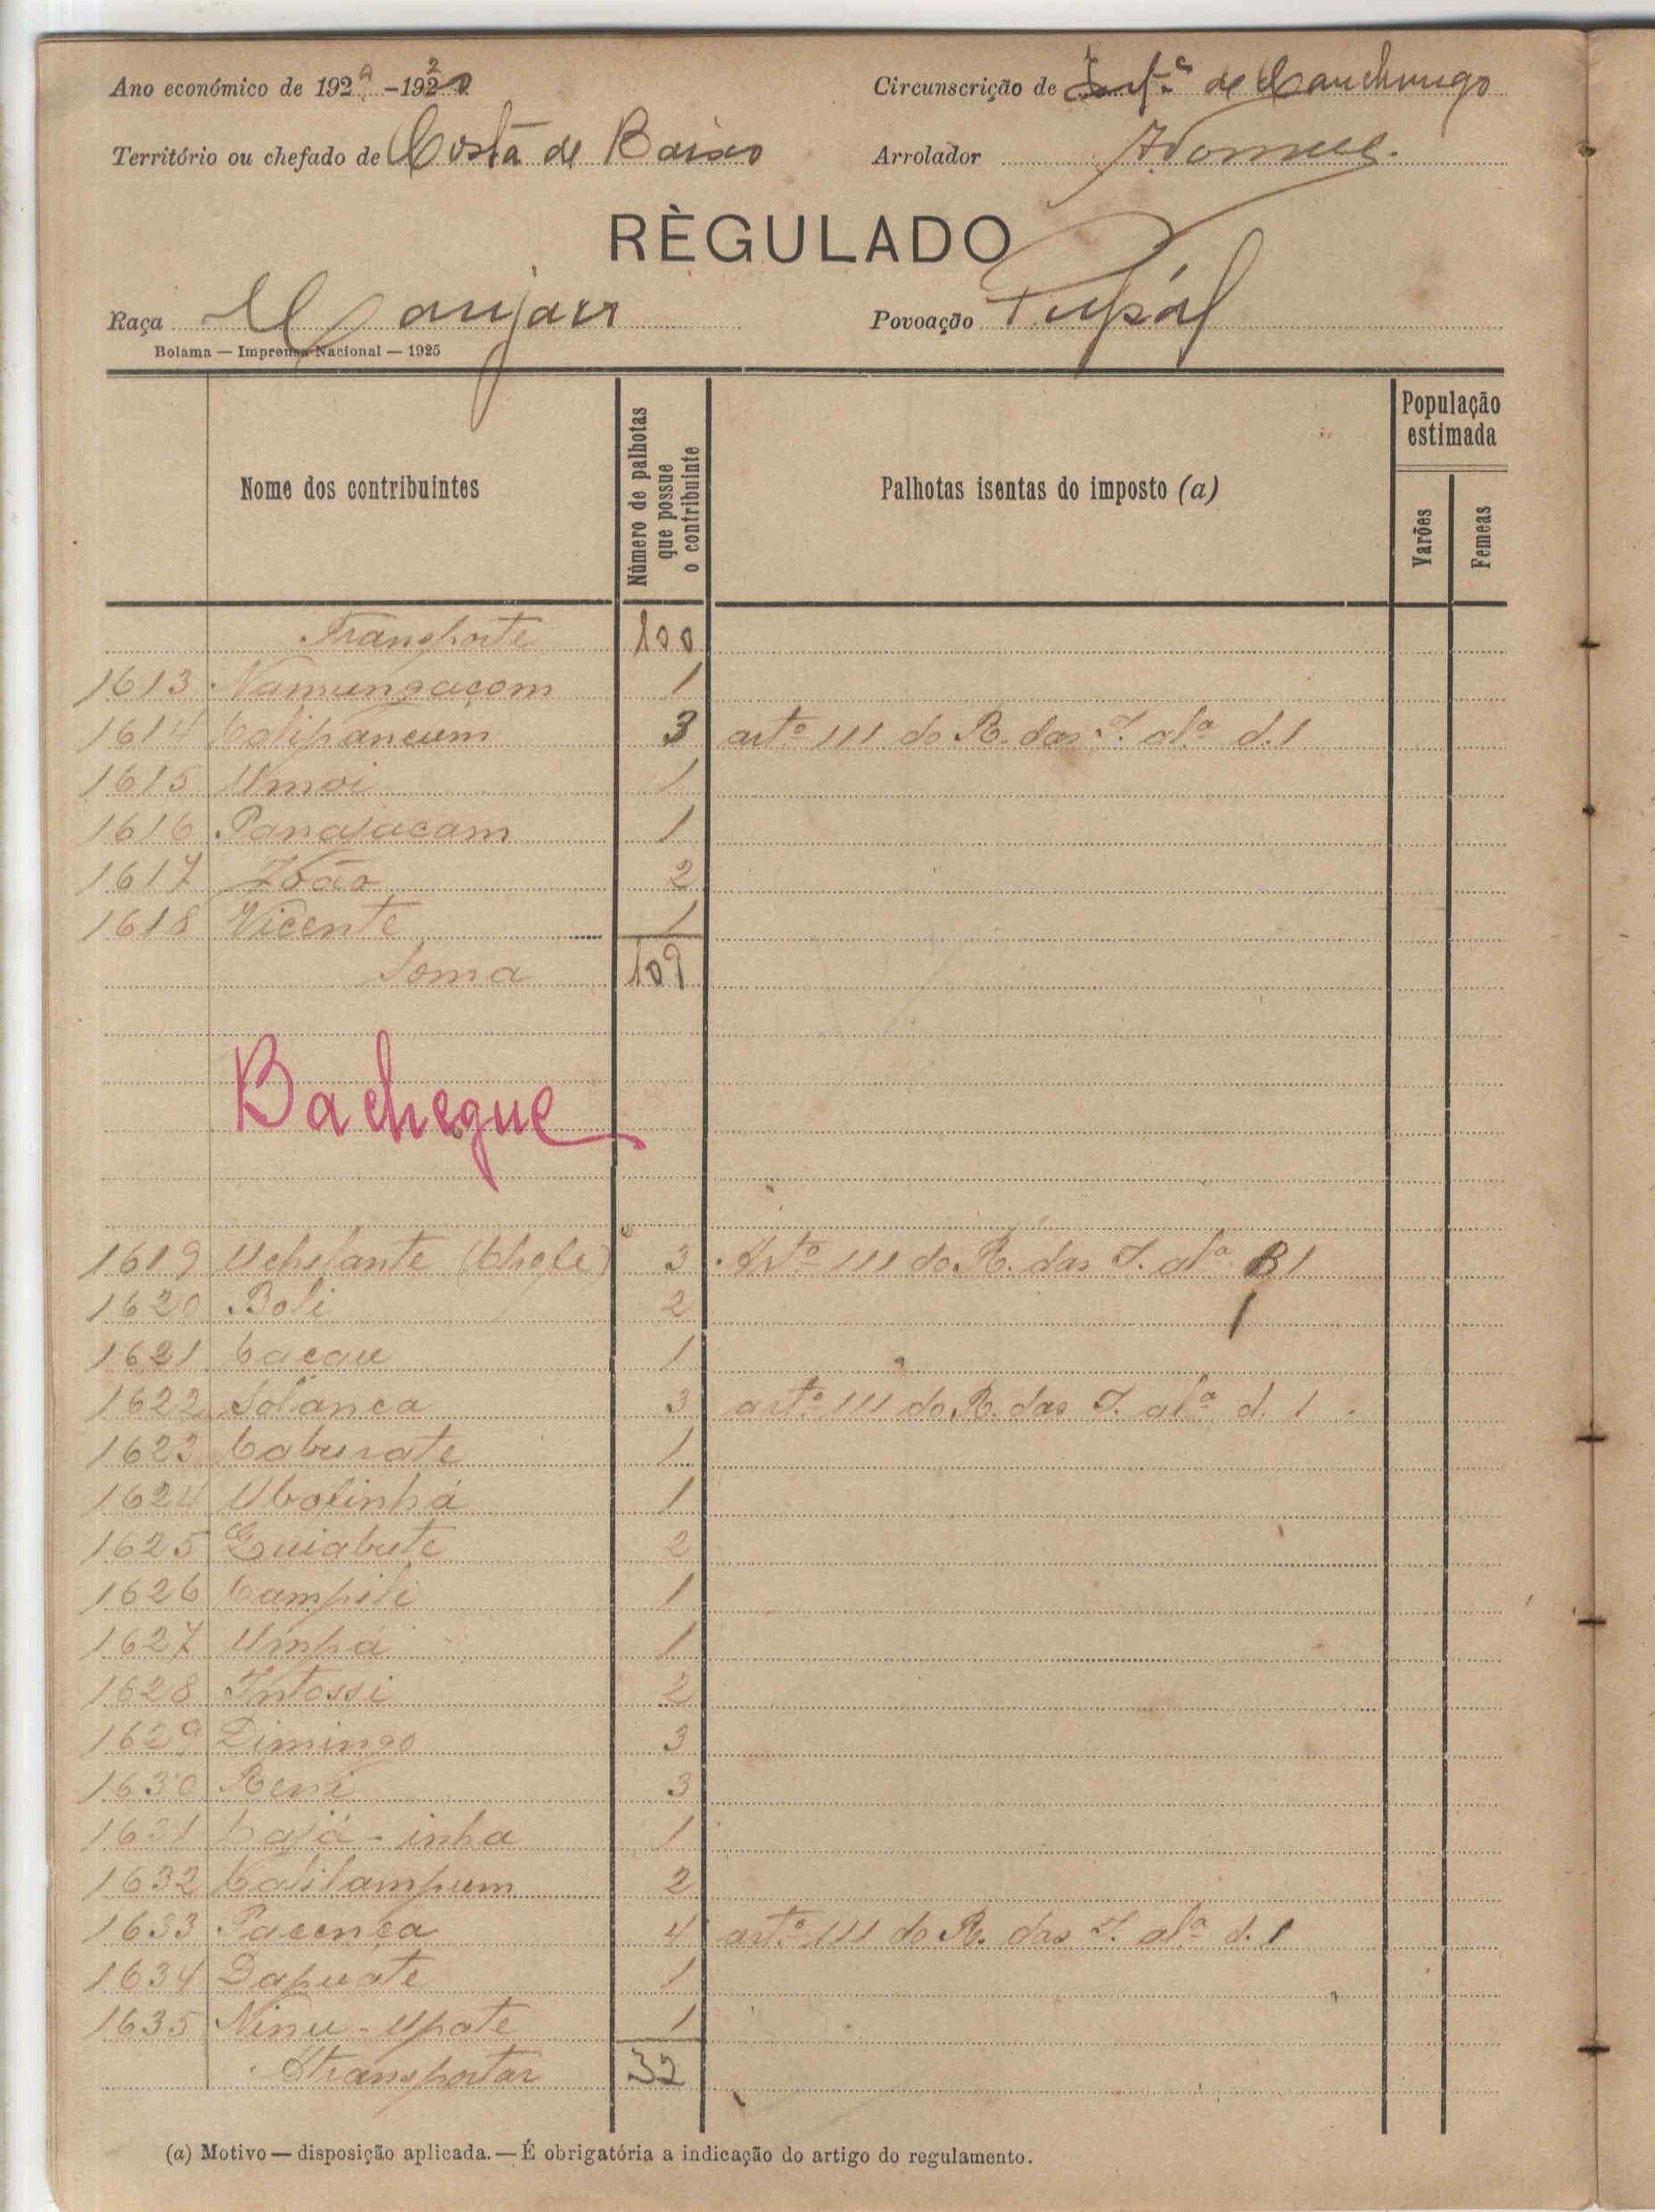 Ano económico de 192 -192
Circunscrição de de Canchungo
Território ou chefado de Costa de Baixo
Arrolador
RÈGULADO
Raça Manjaca
Povoação
Bolama — Imprensa Nacional — 1925
Nome dos contribuintes
Número de palhotas que possue o contribuinte
Palhotas isentas do imposto (a)
População estimada
Varões
Femeas
Transporte 100
1613 Namungaçom 1
1614 Calipancum 3 artº 111 do R. das I. alª d. 1
1615 Umoi 1
1616 Panajacam 1
1617 João 2
1618 Vicente 1
Soma 109
Bachegue
1619 (Chefe) 3 Artº 111 do R. das I. alª B 1
1620 Boli 2 1
1621 Cacau 1
1622 Solanca 3 artº 111 do R. das I. alª d. 1
1623 Caburate 1
1624 1
1625 Quiabute 2
1626 Campili 1
1627 Umpá 1
1628 Intossi 2
1629 Dimingo 3
1630 Reni 3
1631 Cajá-inha 1
1632 Calilampum 2
1633 Pacença 4 artº 111 do R. das I. alª d. 1
1634 Dapuate 1
1635 Ninu-Upate 1
A transportar 32
(a) Motivo — disposição aplicada. — É obrigatória a indicação do artigo do regulamento.